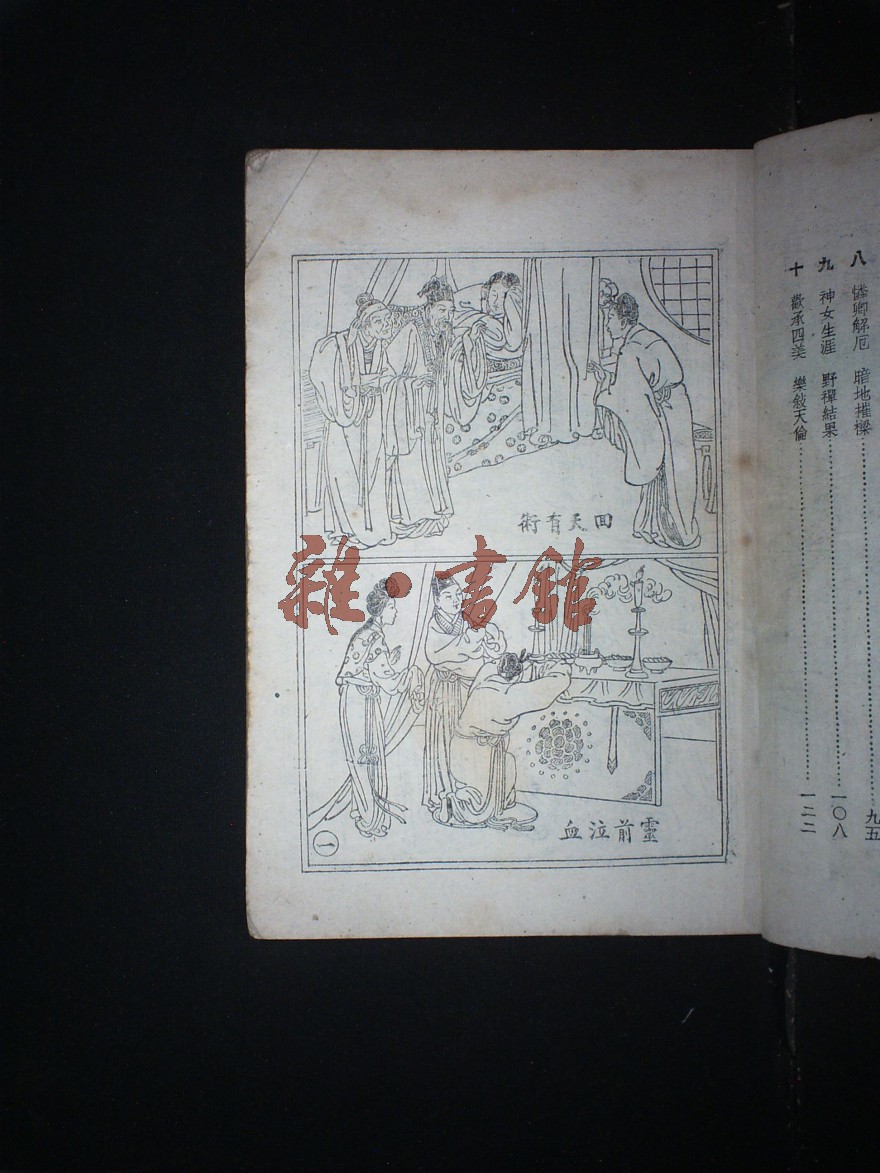 八 憐卿解厄 暗地摧樑⋯⋯⋯⋯⋯⋯九五
九 神女生涯 野禪結果⋯⋯⋯⋯⋯⋯一〇八
十 歡承四美 樂敍天倫⋯⋯⋯⋯⋯⋯一二二
回天有術
雜·書館
靈前泣血
一